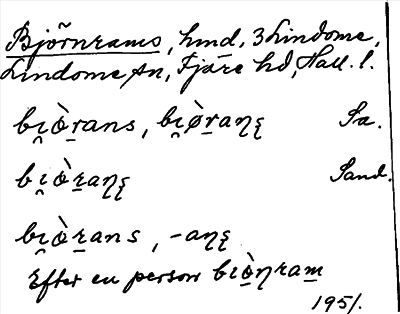 Björnrams, hmd, 3 Lindome,
Lindome sn, Fjäre hd, Hall. l.
bi̯ò̱ṟans, bi̯ø̀ṟaƞę Sa.
bi̯ò̱ṟaƞę Sand.
bi̯ò̱ṟans, -aƞę
Efter en person biò̱ƞram̲
1951.